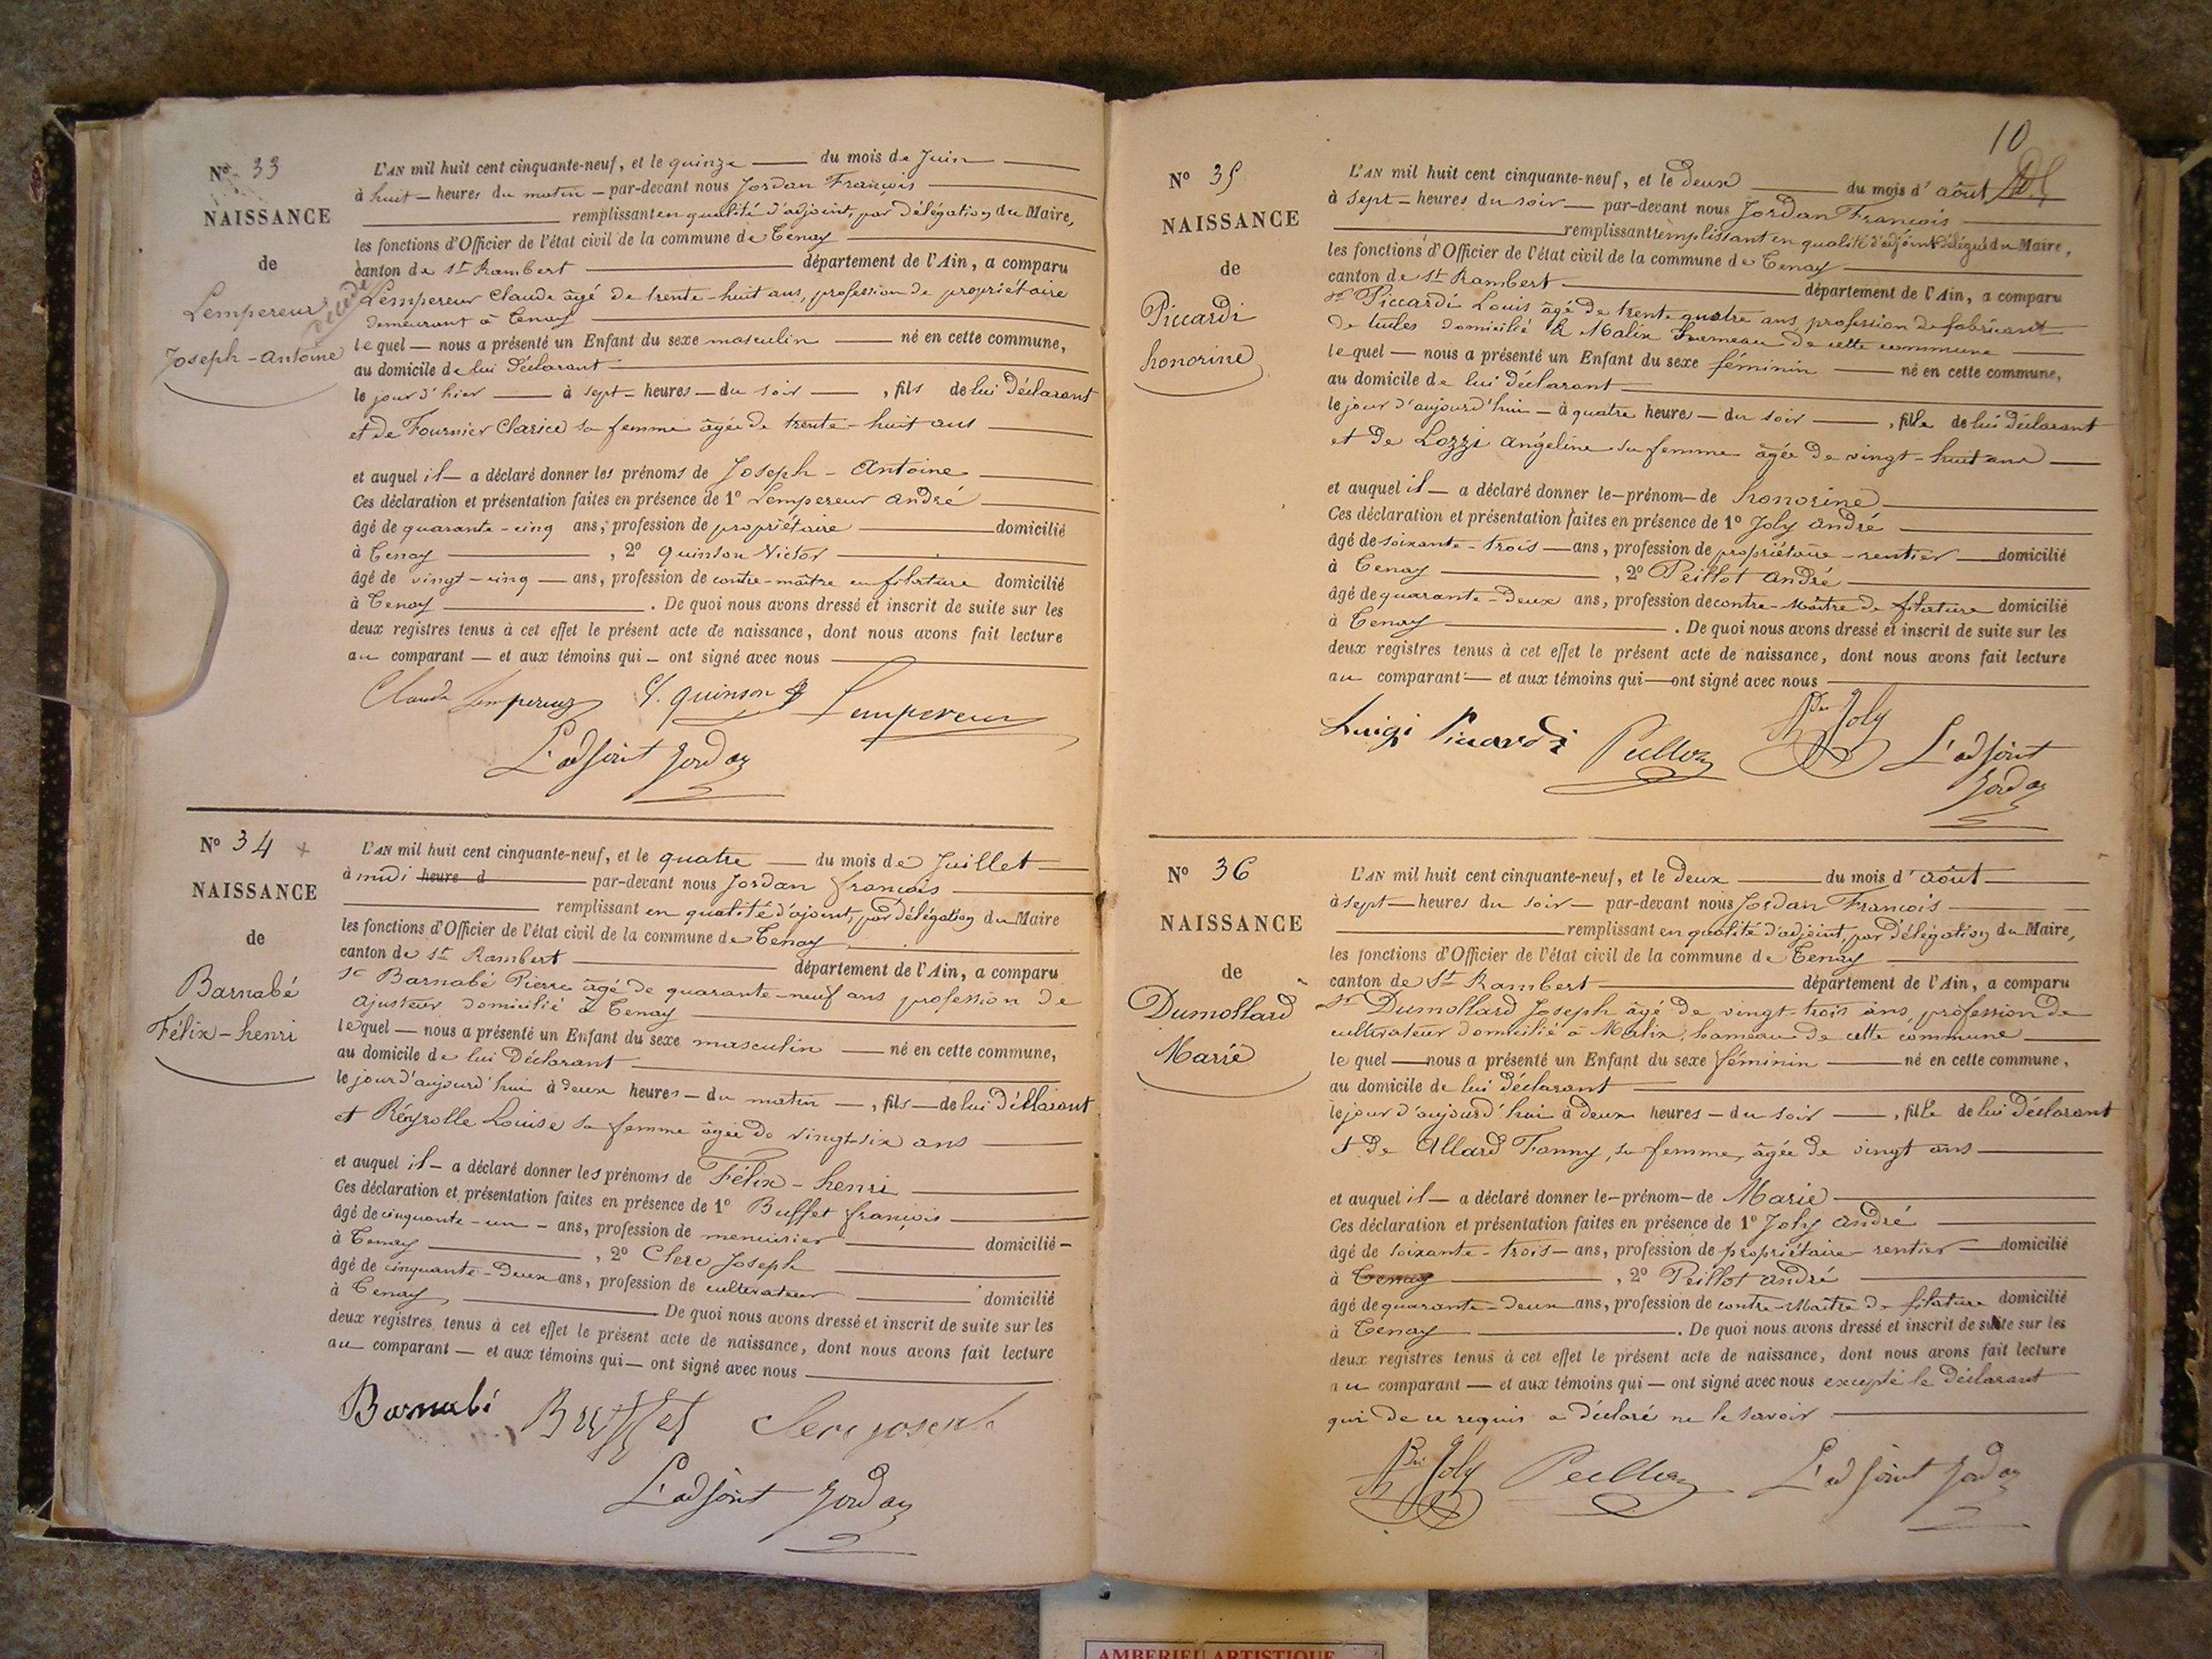 N° 33
NAISSANCE
de
Lempereur
Joseph-Antoine
L'AN mil huit cent cinquante-neuf, et le quinze du mois de Juin
à huit heures du matin par-devant nous Jordan François
remplissant en qualité d'adjoint, par Délégation du Maire,
les fonctions d'Officier de l'état civil de la commune de Tenay
canton de St Rambert département de l'Ain, a comparu
Lempereur Claude âgé de trente-huit ans, profession de propriétaire
demeurant à Tenay
lequel nous a présenté un Enfant du sexe masculin né en cette commune,
au domicile de lui Déclarant
le jour d'hier à sept heures du soir, fils de lui Déclarant
et de Fournier Clarice sa femme âgée de trente-huit ans
et auquel il a déclaré donner les prénoms de Joseph-Antoine
Ces déclaration et présentation faites en présence de 1° Lempereur André
âgé de quarante-cinq ans, profession de propriétaire domicilié
à Tenay, 2° Quinson Victor
âgé de vingt-cinq ans, profession de contre-maître en filature domicilié
à Tenay. De quoi nous avons dressé et inscrit de suite sur les
deux registres tenus à cet effet le présent acte de naissance, dont nous avons fait lecture
au comparant et aux témoins qui ont signé avec nous
Claude Lempereur V. Quinson Lempereur
L'adjoint Jordan
N° 34
NAISSANCE
de
Barnabé
Félix-henri
L'AN mil huit cent cinquante-neuf, et le quatre du mois de Juillet
à midi heure d par-devant nous Jordan françois
remplissant en qualité d'ajoint, par Délégation du Maire
les fonctions d'Officier de l'état civil de la commune de Tenay
canton de St Rambert département de l'Ain, a comparu
Sr Barnabé Pierre âgé de quarante-neuf ans profession de
ajusteur domicilié à Tenay
lequel nous a présenté un Enfant du sexe masculin né en cette commune,
au domicile de lui Déclarant
le jour d'aujourd'hui à deux heures du matin, fils de lui Déclarant
et Réyrolle Louise sa femme âgée de vingt-six ans
et auquel il a déclaré donner les prénoms de Félix-henri
Ces déclaration et présentation faites en présence de 1° Buffet françois
âgé de cinquante-un ans, profession de menuisier domicilié
à Tenay, 2° Clerc Joseph
âgé de cinquante-Deux ans, profession de cultivateur domicilié
à Tenay, De quoi nous avons dressé et inscrit de suite sur les
deux registres tenus à cet effet le présent acte de naissance, dont nous avons fait lecture
au comparant et aux témoins qui ont signé avec nous
Barnabé Buffet Clerc joseph
L'adjoint Jordan
10
N° 35
NAISSANCE
de
Piccardi
honorine
L'AN mil huit cent cinquante-neuf, et le Deux du mois d'août
à sept heures du soir par-devant nous Jordan François
remplissant remplissant en qualité d'adjoint délégué du Maire,
les fonctions d'Officier de l'état civil de la commune de Tenay
canton de St Rambert département de l'Ain, a comparu
Sr Piccardi Louis âgé de trente quatre ans, profession de fabricant
de tuiles domicilié à Malix hameau de cette commune
lequel nous a présenté un Enfant du sexe féminin né en cette commune,
au domicile de lui déclarant
le jour d'aujourd'hui à quatre heures du soir, fille de lui Déclarant
et de Lozzi Angéline sa femme âgée de vingt-huit ans
et auquel il a déclaré donner le prénom de honorine
Ces déclaration et présentation faites en présence de 1° Joly André
âgé de soixante-trois ans, profession de propriétaire-rentier domicilié
à Tenay, 2° Peillot André
âgé de quarante-Deux ans, profession de contre-Maître de filature domicilié
à Tenay. De quoi nous avons dressé et inscrit de suite sur les
deux registres tenus à cet effet le présent acte de naissance, dont nous avons fait lecture
au comparant et aux témoins qui ont signé avec nous
Luigi Picardi Peillot Joly L'adjoint
Jordan
N° 36
NAISSANCE
de
Dumollard
Marie
L'AN mil huit cent cinquante-neuf, et le Deux du mois d'août
à sept heures du soir par-devant nous Jordan François
remplissant en qualité d'adjoint, par Délégation du Maire,
les fonctions d'Officier de l'état civil de la commune de Tenay
canton de St Rambert département de l'Ain, a comparu
Sr Dumollard Joseph âgé de vingt-trois ans, profession de
cultivateur domicilié à Malix, hameau de cette commune
lequel nous a présenté un Enfant du sexe féminin né en cette commune,
au domicile de lui Déclarant
le jour d'aujourd'hui à deux heures du soir, fille de lui Déclarant
et de Allard Fanny, sa femme, âgée de vingt ans
et auquel il a déclaré donner le prénom de Marie
Ces déclaration et présentation faites en présence de 1° Joly André
âgé de soixante-trois ans, profession de propriétaire-rentier domicilié
à Tenay, 2° Peillot André
âgé de quarante-deux ans, profession de contre-Maître de filature domicilié
à Tenay. De quoi nous avons dressé et inscrit de suite sur les
deux registres tenus à cet effet le présent acte de naissance, dont nous avons fait lecture
au comparant et aux témoins qui ont signé avec nous excepté le Déclarant
qui de ce requis a déclaré ne le savoir
Joly Peillot L'adjoint Jordan
AMBERIEU ARTISTIQUE